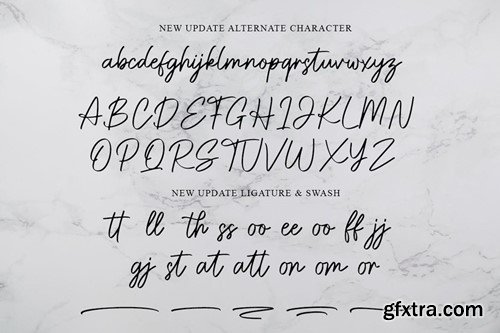 NEW UPDATE ALTERNATE CHARACTER
abcdefghijklmnopqrstuvwxyz
ABCDEFGHIJKLMN
OPQRSTUVWXYZ
NEW UPDATE LIGATURE & SWASH
tt ll th ss oo ee oo ff jj
gj st at att on om or
gfxtra.com